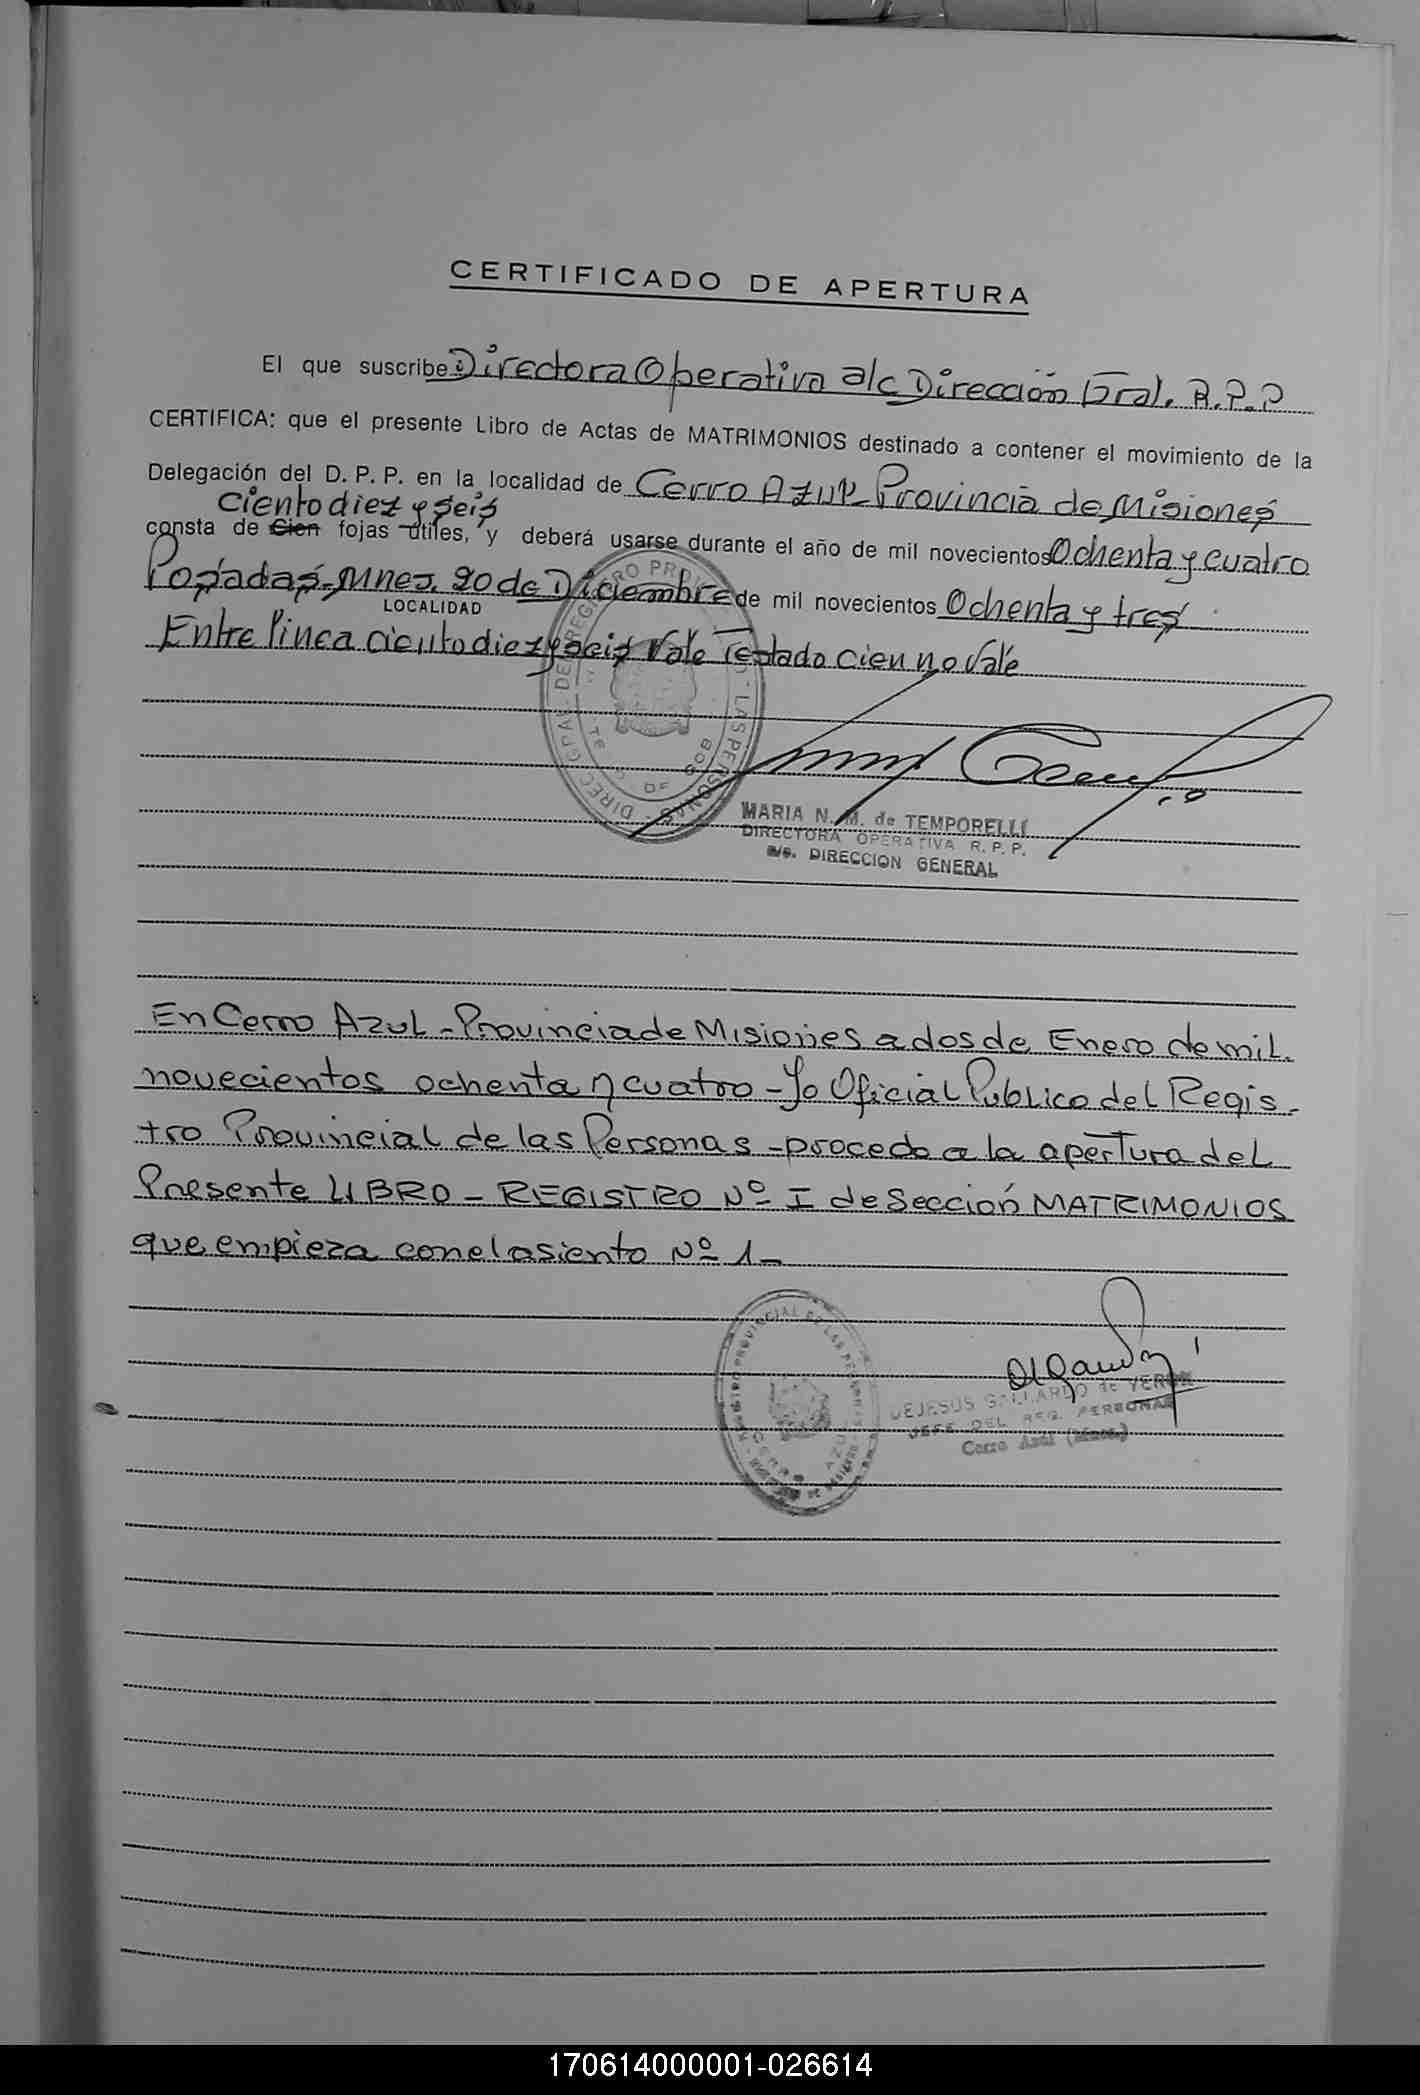 CERTIFICADO DE APERTURA
El que suscribe Directora Operativa a/c Dirección Gral. R.P.P
CERTIFICA: que el presente Libro de Actas de MATRIMONIOS destinado a contener el movimiento de la
Delegación del D. P. P. en la localidad de Cerro Azul - Provincia de Misiones
Ciento diez y seis
consta de Cien fojas útiles, y deberá usarse durante el año de mil novecientos Ochenta y cuatro
Posadas, Mnes. 20 de Diciembre de mil novecientos Ochenta y tres
LOCALIDAD
Entre linea ciento diez y seis Vale Testado cien no Vale
MARIA N. M. de TEMPORELLI
DIRECTORA OPERATIVA R. P. P.
a/c. DIRECCION GENERAL
En Cerro Azul - Provincia de Misiones a dos de Enero de mil
novecientos ochenta y cuatro - Yo Oficial Publico del Regis-
tro Provincial de las Personas - procedo a la apertura del
Presente LIBRO - REGISTRO Nº I de Sección MATRIMONIOS
que empieza con el asiento Nº 1 -
DEJESUS GALLARDO de YERON
JEFE DEL REG. PERSONAS
Cerro Azul (Mnes.)
170614000001-026614